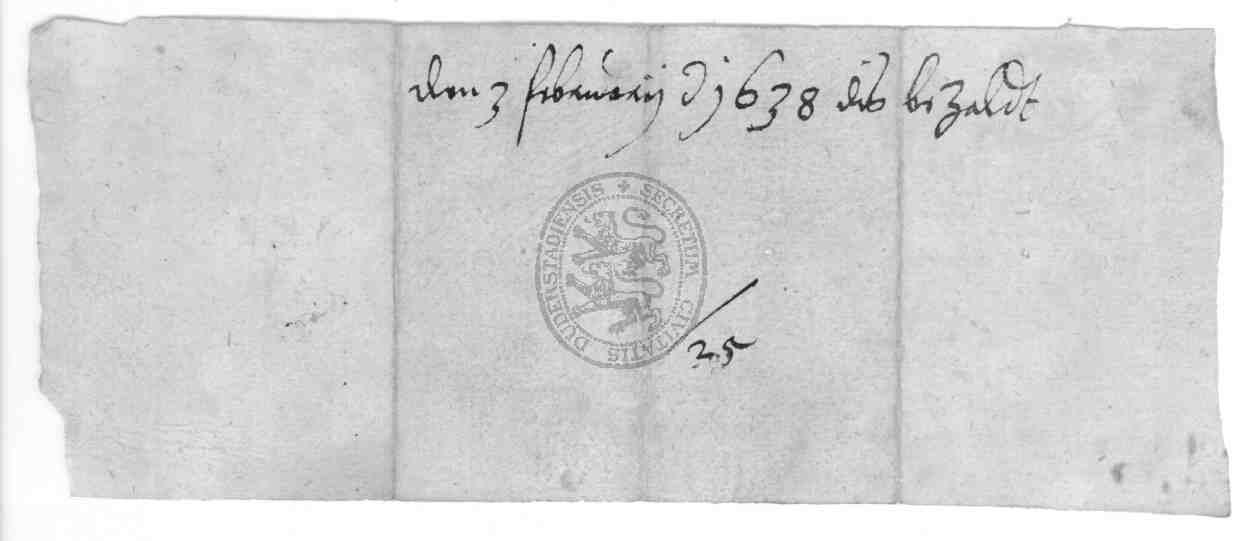 den 3 februarij 1638 dis bezaldt
SECRETUM CIVITATIS DUDERSTADIENSIS
25